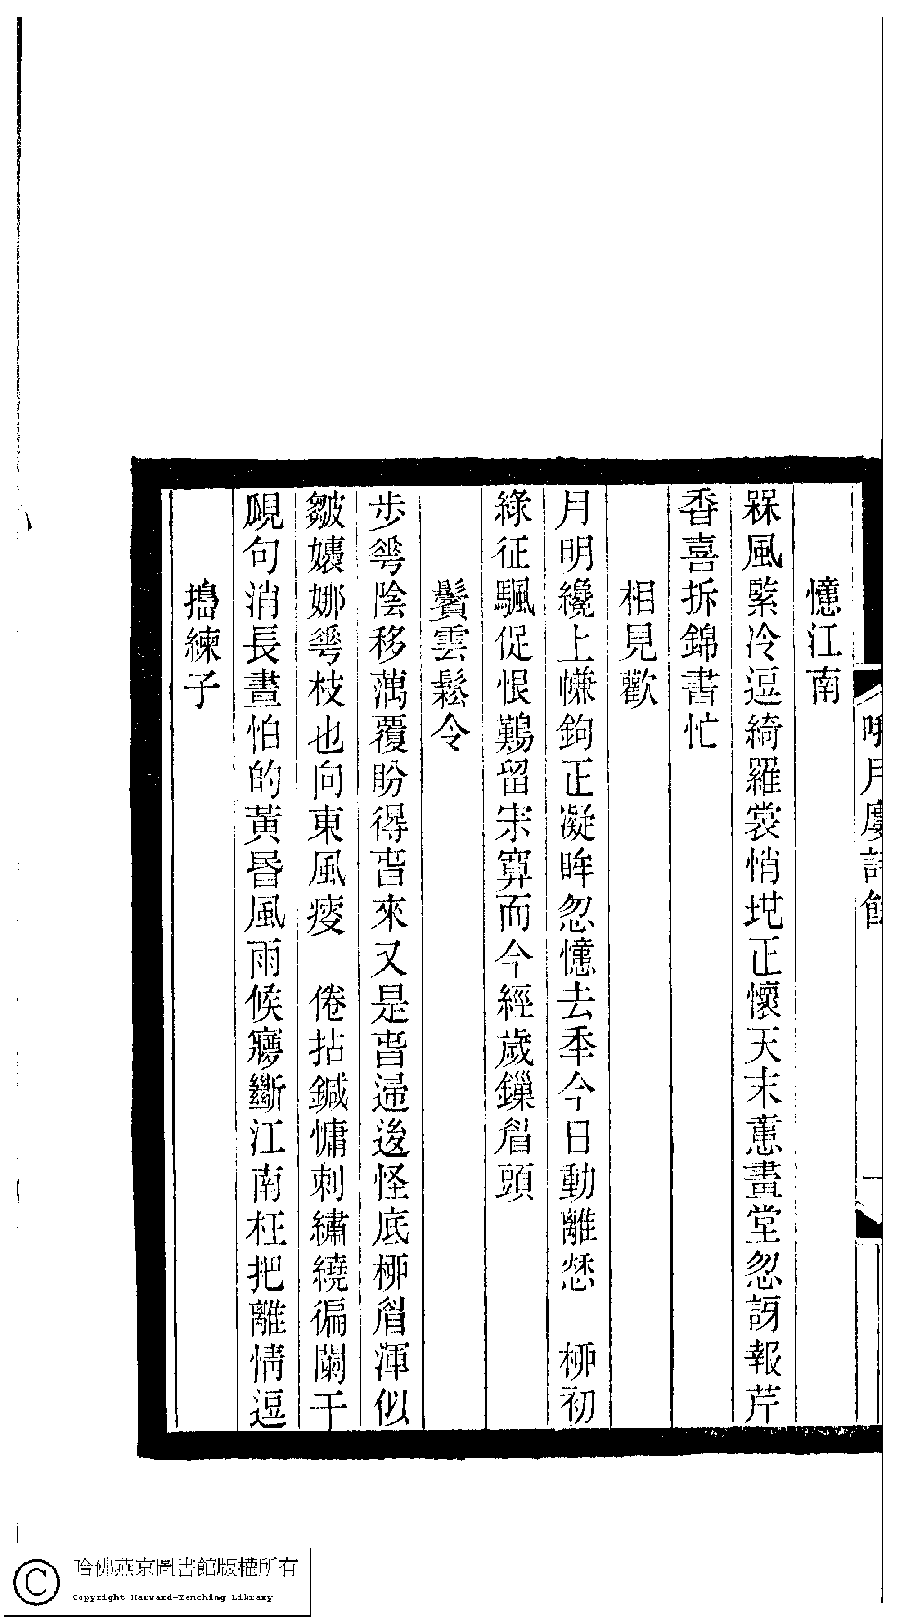 憶江南
槑風緊冷逗綺羅裳悄坒正懷天末蕙畫堂忽訝報芹
香喜拆錦書忙
相見歡
月明纔上㡘鉤正凝眸忽憶去秊今日動離愁　桺初
綠征颿促恨難留宋寞而今經歲鏁眉頭
鬢雲鬆令
步芲陰移蕅覆盼得旾來又是旾歸後怪底桺眉渾似
皺嬝娜芲枝也向東風瘦　倦拈鍼慵刺繡繞徧闌干
覞句消長晝怕的黃昏風雨候寱斷江南枉把離情逗
搗練子
哦月廔詩餘
一
哈佛燕京圖書館版權所有
Copyright Harvard-Yenching Library